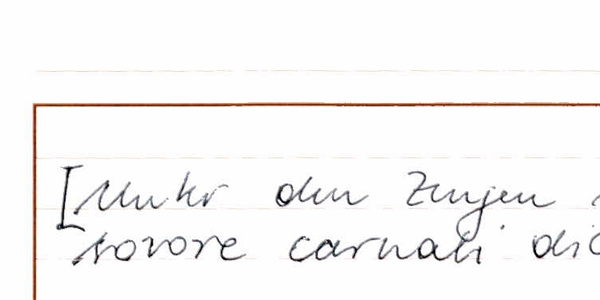 [Unter den Zeugen
sorore carnali dic